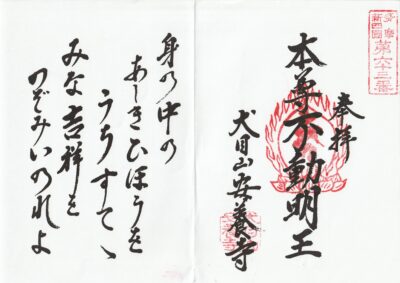 多摩
新四国
第六十三番
奉拝
本尊不動明王
犬目山安養寺
身の中の
あしきひほうを
うちすてゝ
みな吉祥を
のぞみいのれよ